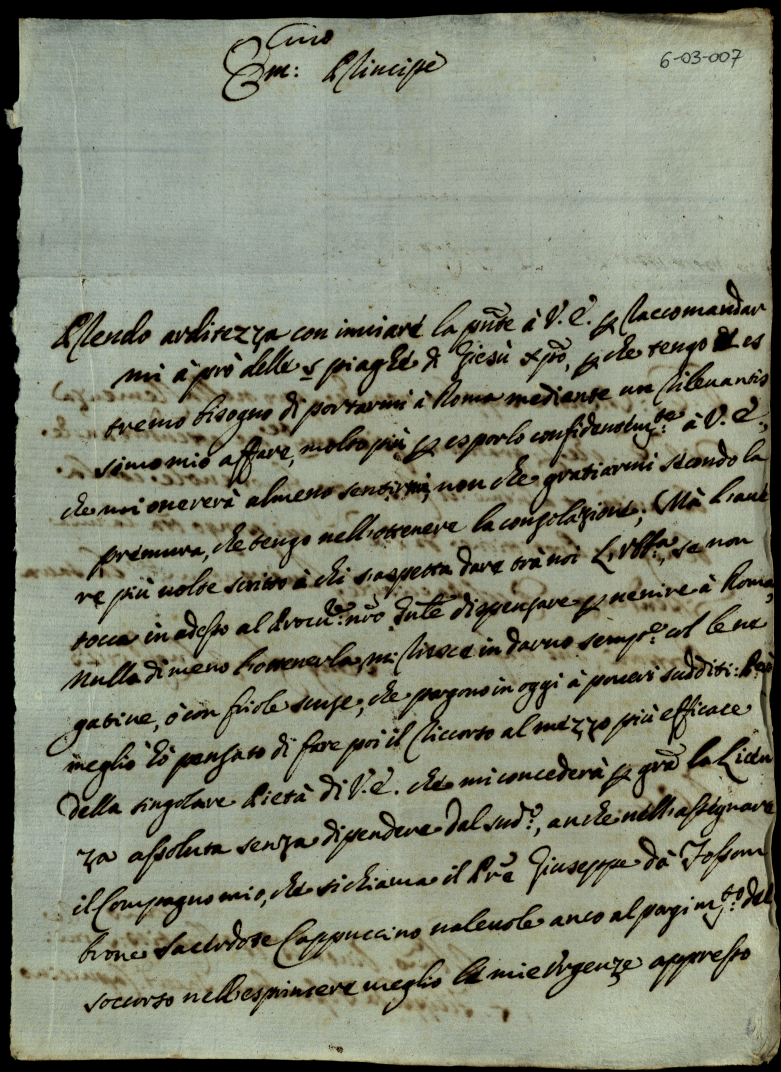 6-03-007
Em:mo Principe
Prendo arditezza con inviare la pnte à V. E. p raccomandar
mi à prò delle 5 piaghe di Giesù Xpõ, p che tengo es
tremo bisogno di portarmi à Roma mediante un rilevantis
simo mio affare, molto più p esporlo confidentem.te à V. E.,
che mi onererà almeno sentirmi, non che gratiarmi secondo la
premura, che tengo nell'ottenere la consolazione; Mà havē
re più volte scritto à chi s'aspetta dare trà noi, se non
tocca in adesso al Procu.re nrō dispensare p venire à Roma,
Nulladimeno l'ottenerla, mi riesce indarno sempre col le ne
gative, ò con friole scuse, che porgono in oggi à poveri sudditi: Però
meglio hò pensato di fare poi il riccorso al mezzo più efficace
della singolare Pietà di V. E. che mi concederà p grā la Licen
za assoluta senza dipendere dal sud.o, anche nell'assegnare
il Compagno mio, che si chiama il Pre Giuseppe dà Fossom
brone Sacerdote Cappuccino valevole anco al porgim.to del
soccorso nell'esprimere meglio le mie Urgenze appresso